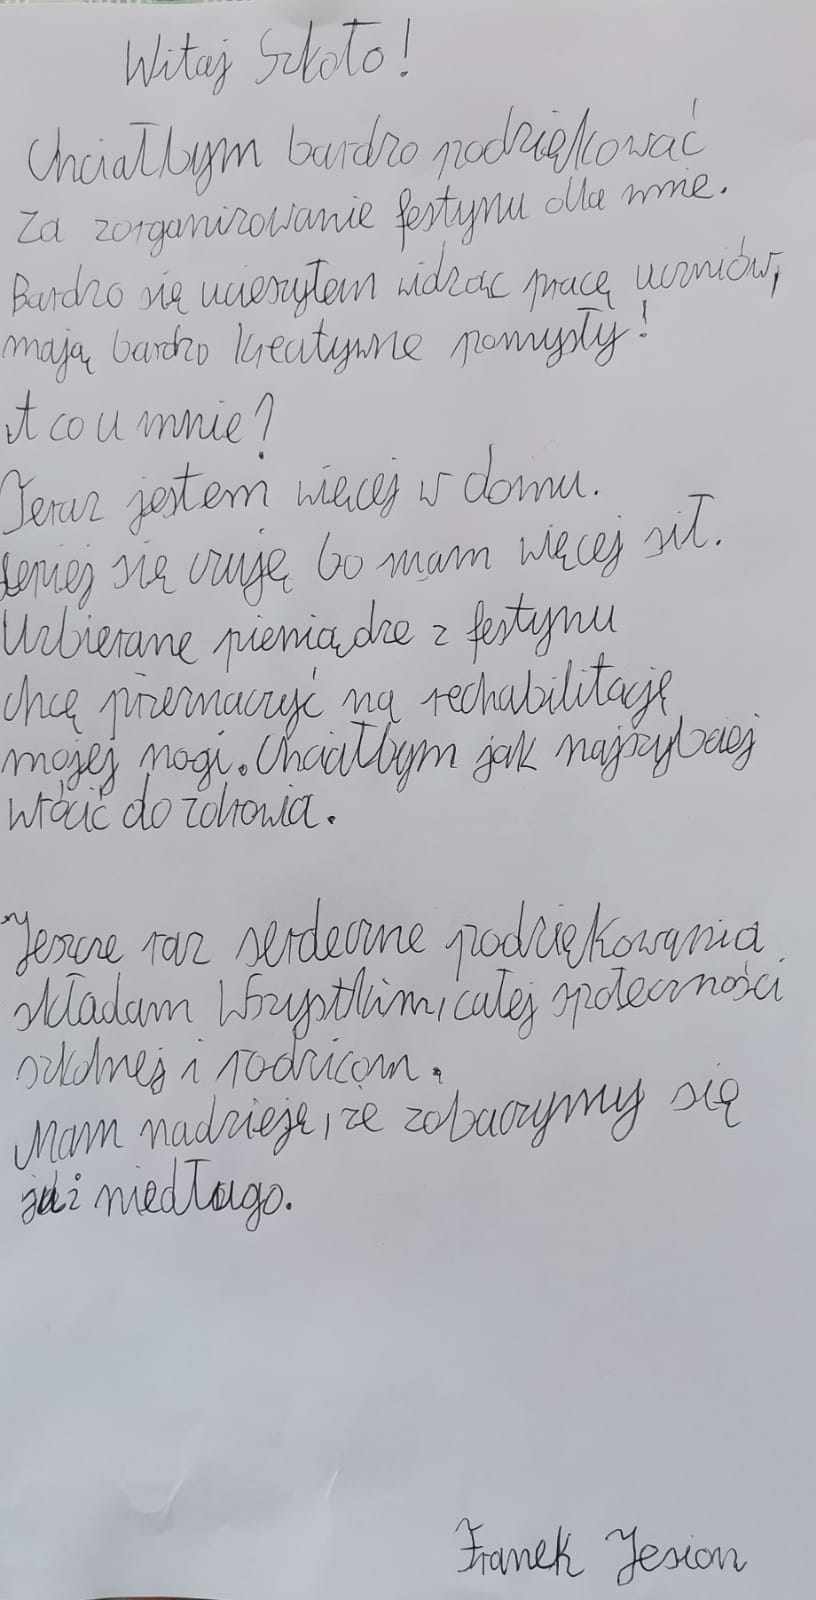 Witaj Szkoło!
Chciałbym bardzo podziękować
Za zorganizowanie festynu dla mnie.
Bardzo się ucieszyłem widząc pracę uczniów,
mają bardzo kreatywne pomysły!
A co u mnie?
Teraz jestem więcej w domu.
Lepiej się czuję bo mam więcej sił.
Uzbierane pieniądze z festynu
chcę przeznaczyć na rechabilitację
mojej nogi. Chciałbym jak najszybciej
wrócić do zdrowia.
Jeszcze raz serdeczne podziękowania
składam Wszystkim, całej społeczności
szkolnej i rodzicom.
Mam nadzieję, że zobaczymy się
już niedługo.
Franek Jesion